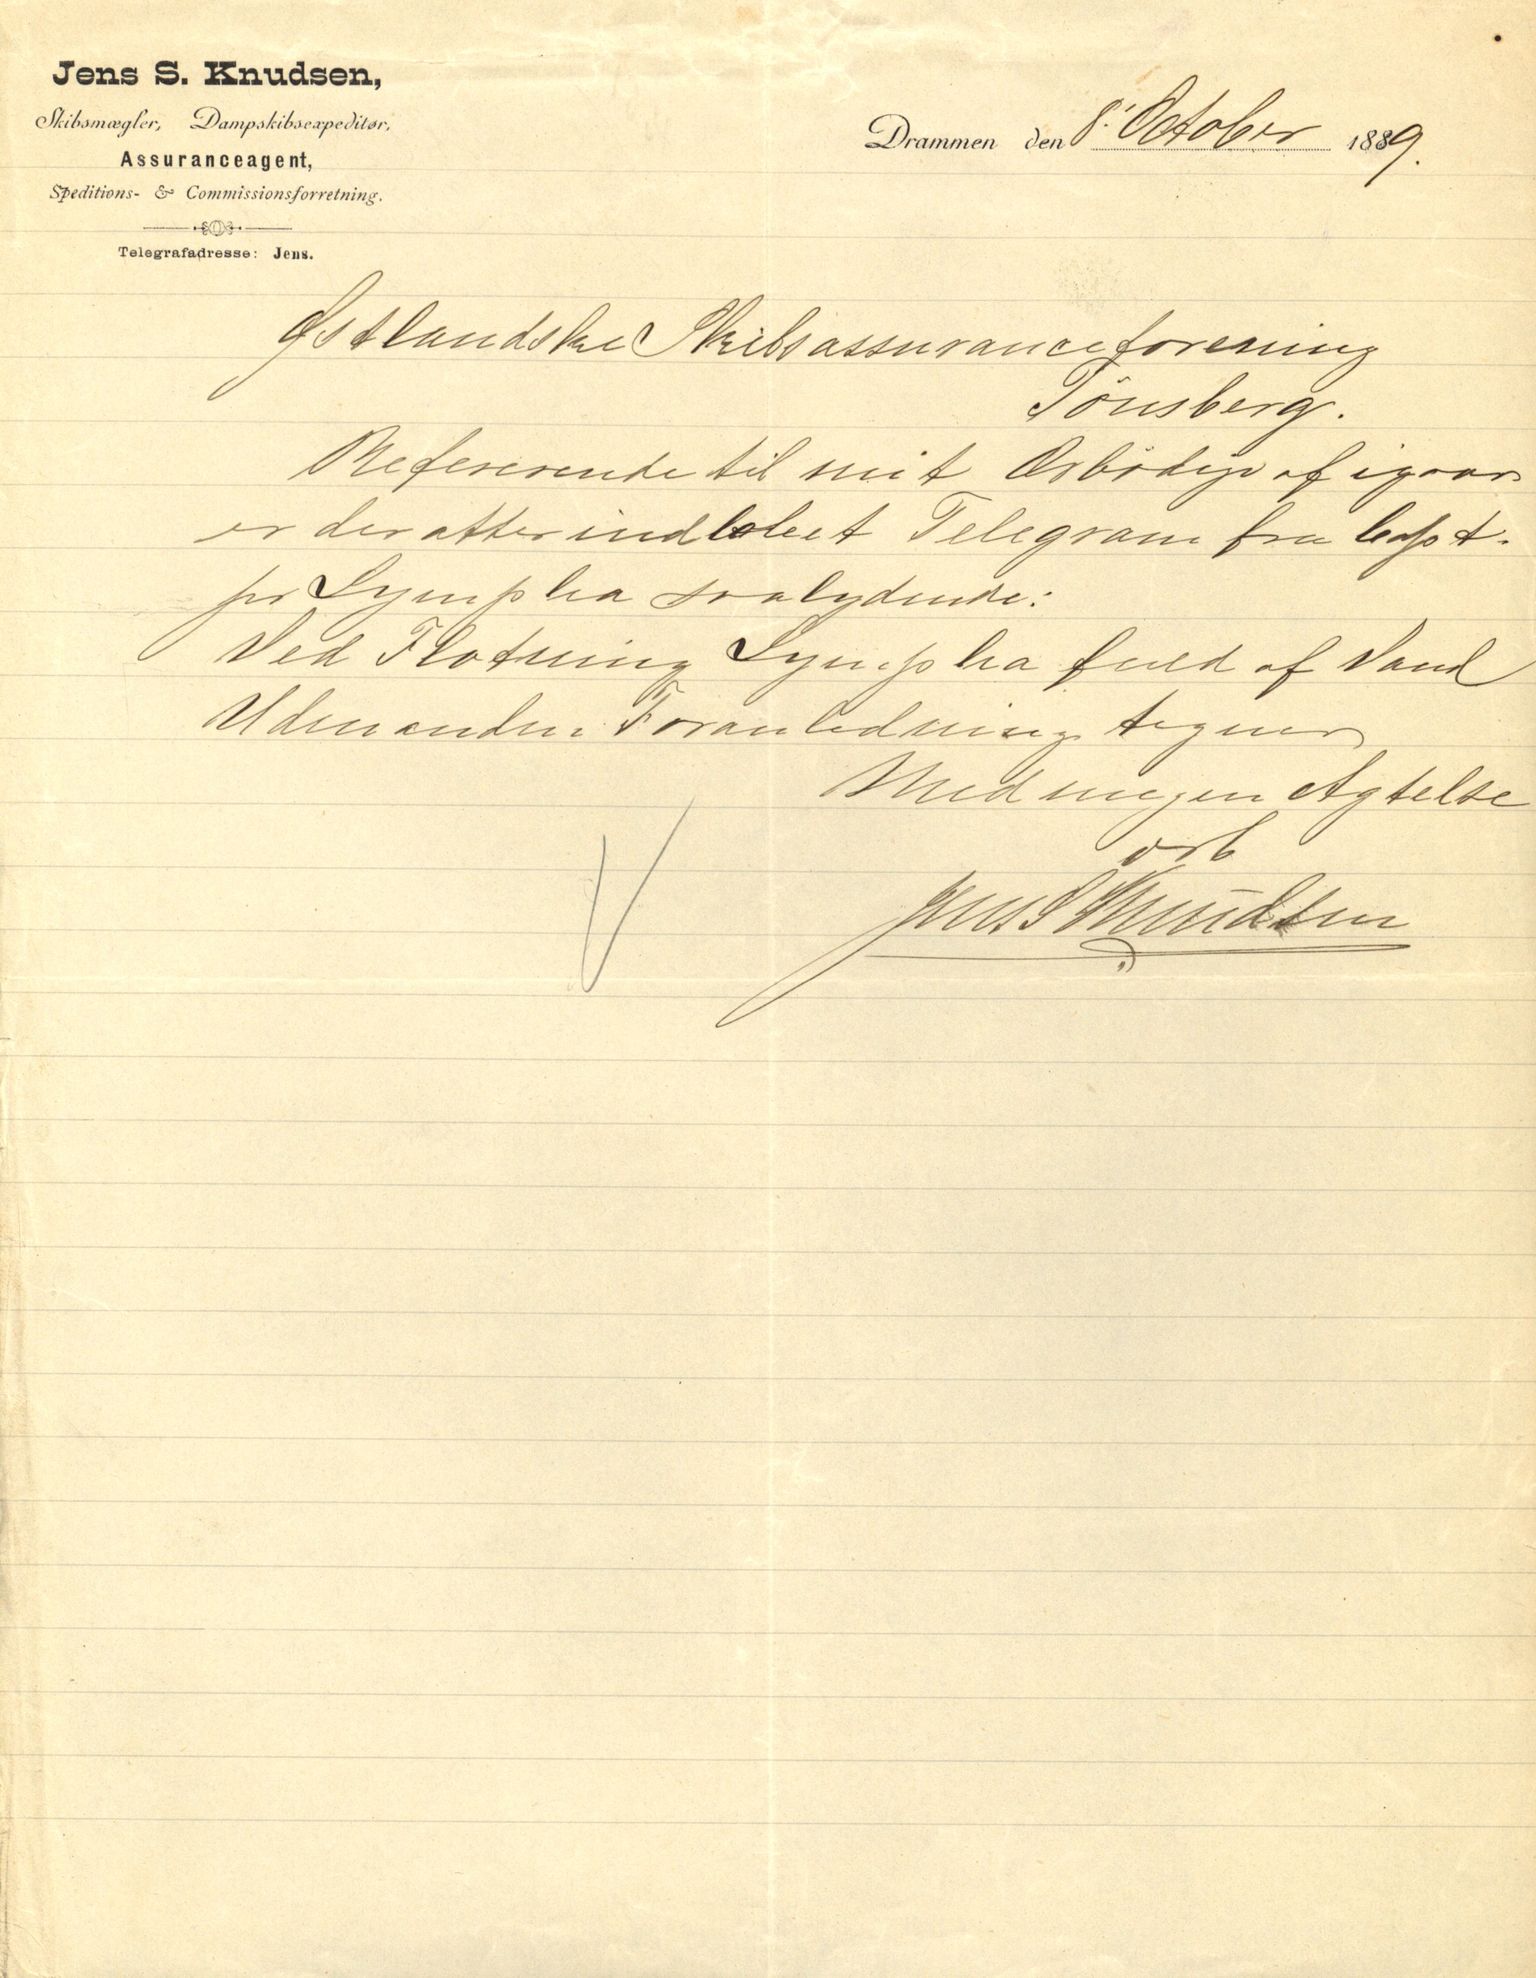 Jens S. Knudsen,
Skibsmægler, Dampskibsexpeditør,
Assuranceagent,
Speditions- & Commissionsforretning.
Telegrafadresse: Jens.
Drammen den 8' October 1889.
Østlandske Skibsassuranceforening
Tönsberg.
Refererende til mit Ærbödige af igaar
er der atter indløbet Telegram fra Capt.
pr Lympha saalydende:
Ved Flotning Lympha fuld af Vand
Uden anden Foranledning tegner
Med megen Agtelse
ærb
Jens S Knudsen